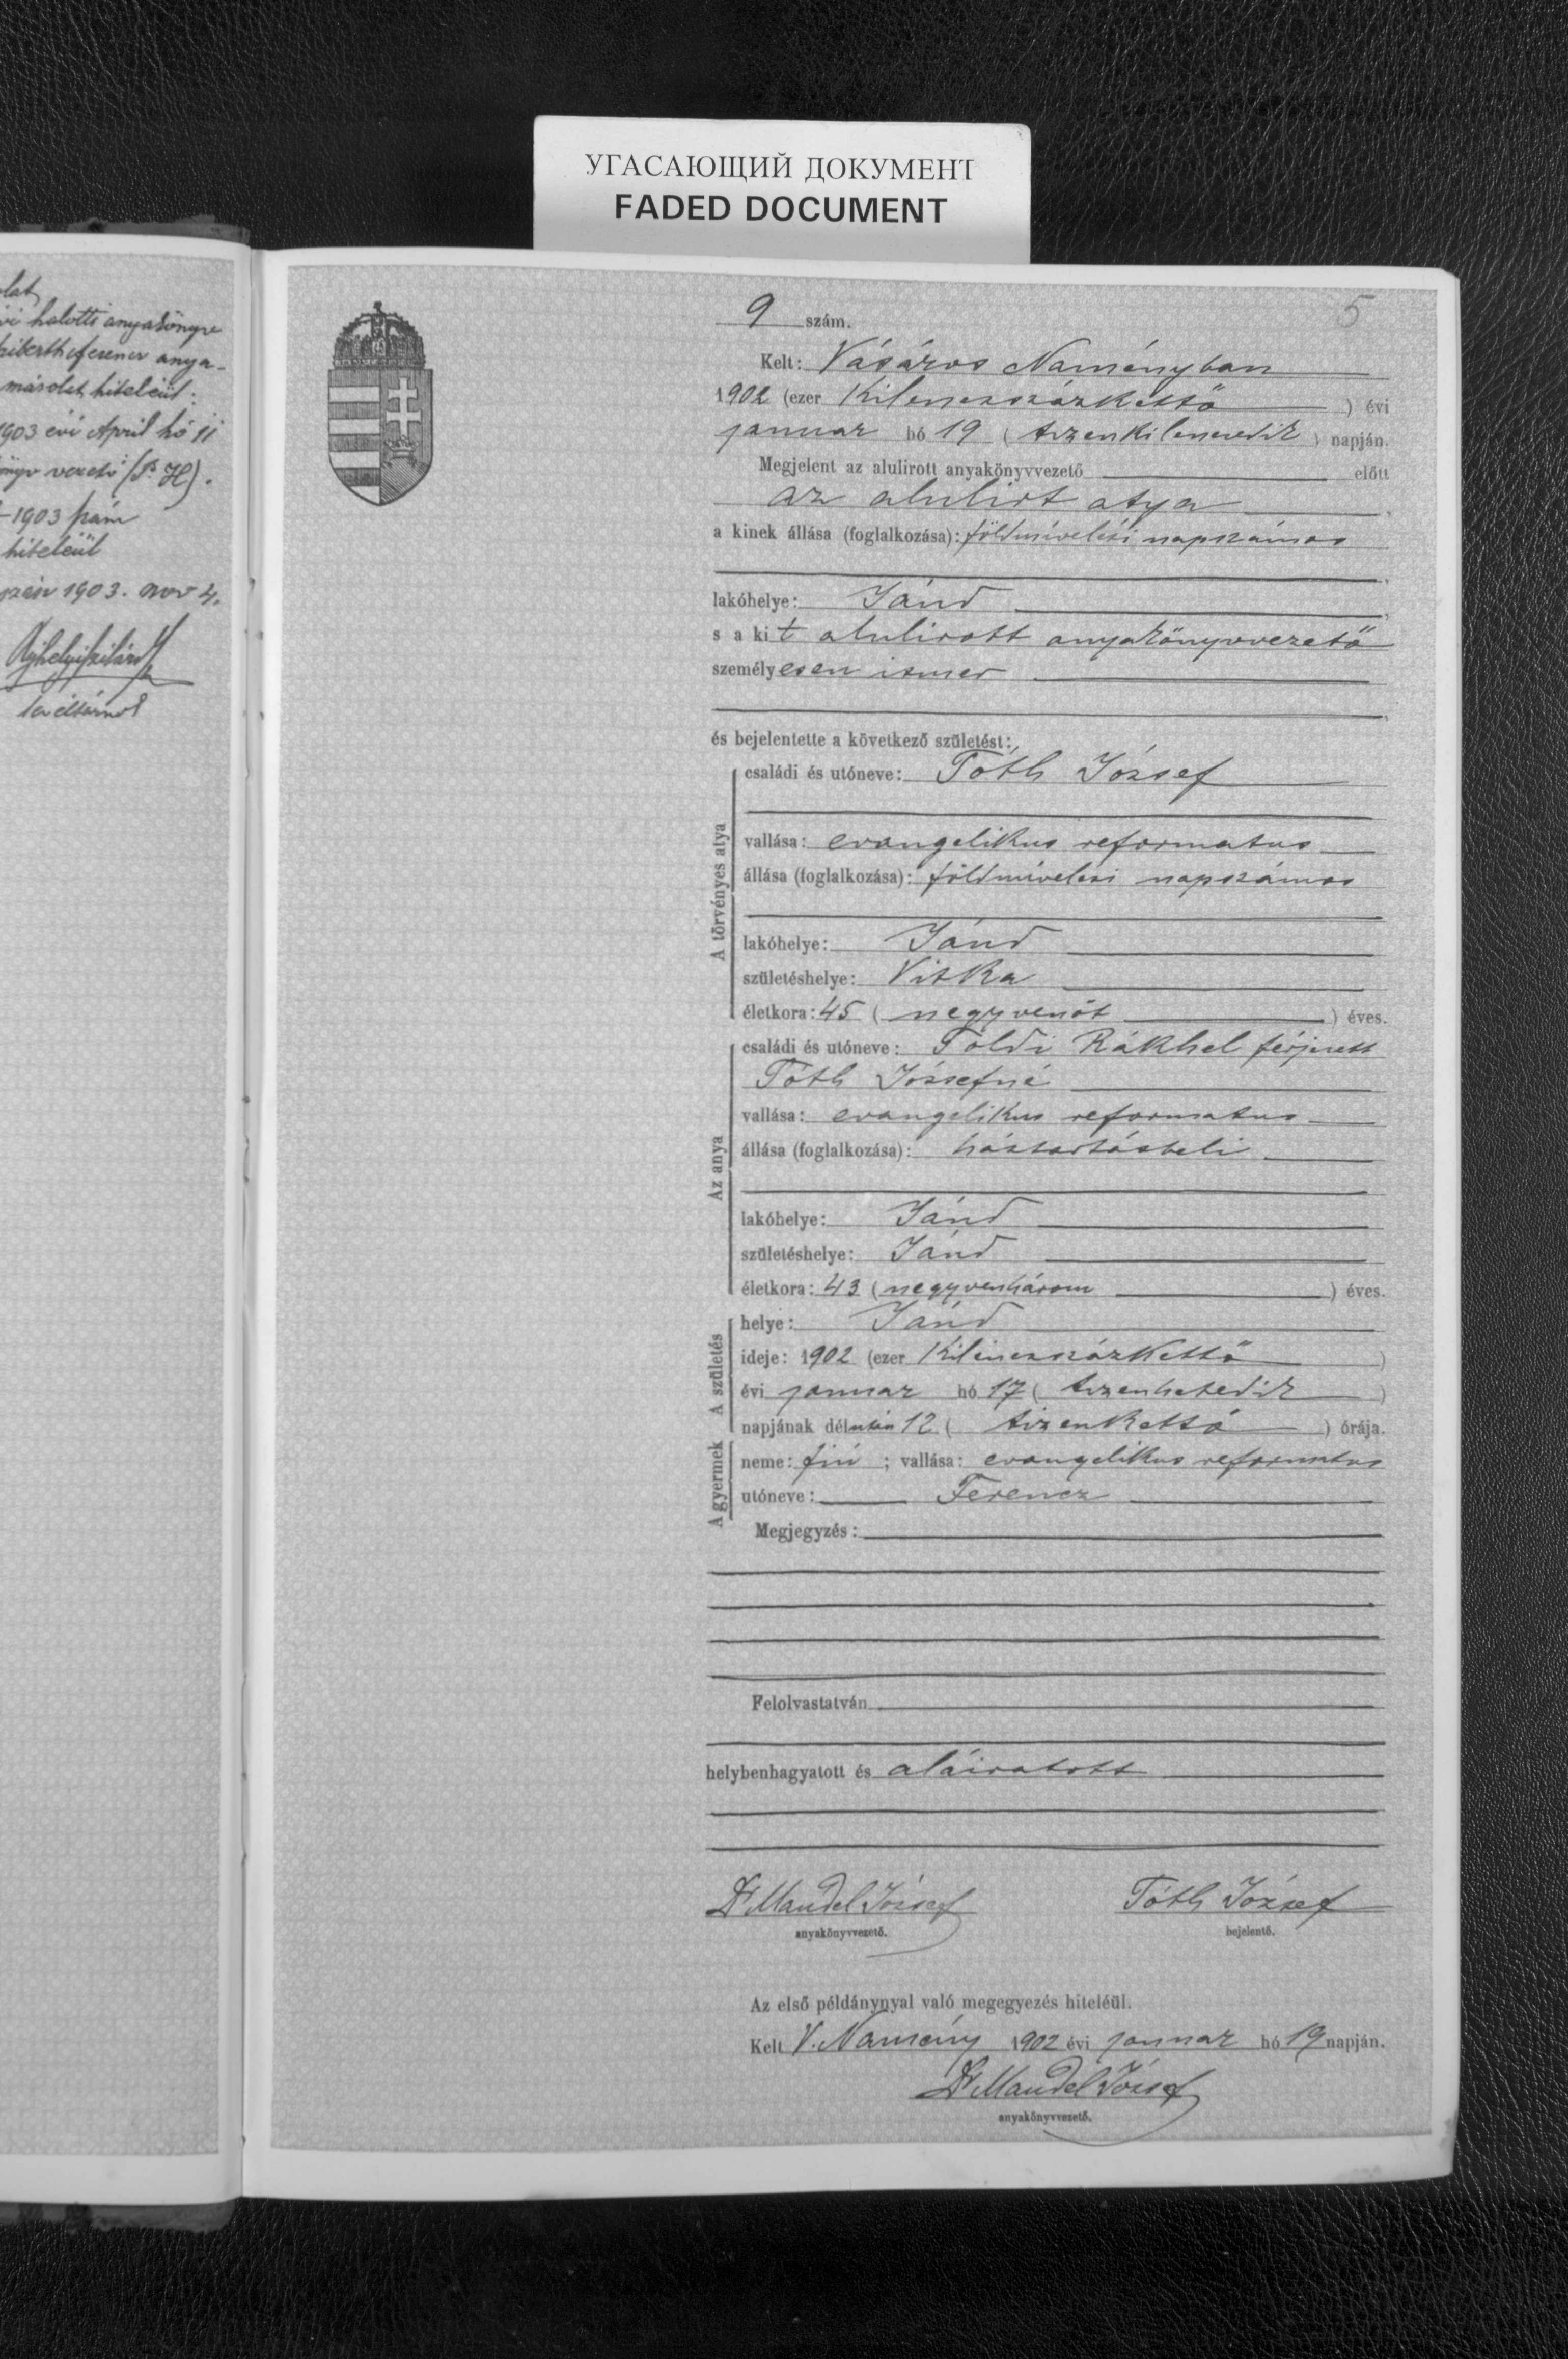 УГАСАЮЩИЙ ДОКУМЕНТ
FADED DOCUMENT
vi halotti anyakönyve
anya-
másolat hiteléül:
1903 évi April hó 11
vezető (P. H).
-1903 szám
hiteléül
1903. nov 4.
5
9 szám.
Kelt: Vásáros Naményban
1902 (ezer Kilenczszázkettő ) évi
januar hó 19 (tizenkilenczedik) napján.
Megjelent az alulirott anyakönyvvezető előtt
az alulirt atya
a kinek állása (foglalkozása): földmivelési napszámos
lakóhelye: Jánd
s a kit alulirott anyakönyvvezető
személyesen ismer
és bejelentette a következő születést:
A törvényes atya
családi és utóneve: Tóth József
vallása: evangelikus reformatus
állása (foglalkozása): földmivelesi napszámos
lakóhelye: Jánd
születéshelye: Vitka
életkora: 45 (negyvenöt ) éves.
Az anya
családi és utóneve: Földi Rákhel férjezett
Tóth Józsefné
vallása: evangelikus reformatus
állása (foglalkozása): háztartásbeli
lakóhelye: Jánd
születéshelye: Jánd
életkora: 43 (negyvenhárom ) éves.
A születés
helye: Jánd
ideje: 1902 (ezer Kilenczszázkettő )
évi januar hó 17 (tizenhetedik )
napjának délután 12 ( tizenkettő ) órája.
A gyermek
neme: fiú ; vallása: evangelikus reformatus
utóneve: Ferencz
Megjegyzés:
Felolvastatván
helybenhagyatott és aláiratott
Dr Mandel József Tóth József
anyakönyvvezető. bejelentő.
Az első példánynyal való megegyezés hiteléül.
Kelt V. Namény 1902 évi januar hó 19 napján.
Dr Mandel József
anyakönyvvezető.